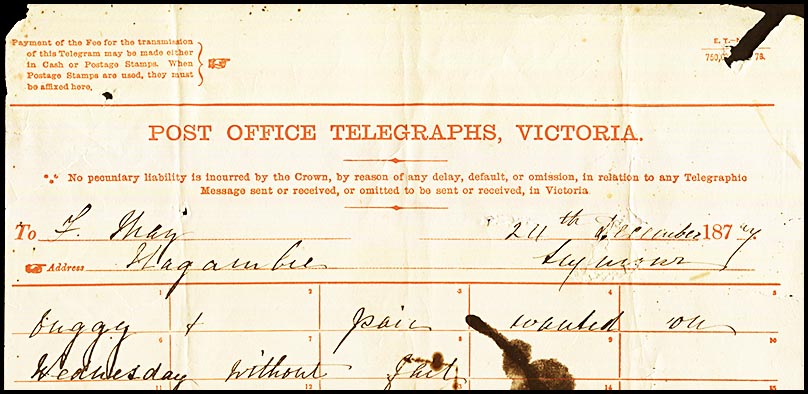 Payment of the Fee for the transmission
of this Telegram may be made either
in Cash or Postage Stamps. When
Postage Stamps are used, they must
be affixed here.
E. T.
750, 78.
POST OFFICE TELEGRAPHS, VICTORIA.
No pecuniary liability is incurred by the Crown, by reason of any delay, default, or omission, in relation to any Telegraphic
Message sent or received, or omitted to be sent or received, in Victoria.
To F. May 24th December 187
Address Nagambie Seymour
1 2 3 4 5
buggy & pair wanted on
6 7 8 9 10
Wednesday without fail
11 12 14